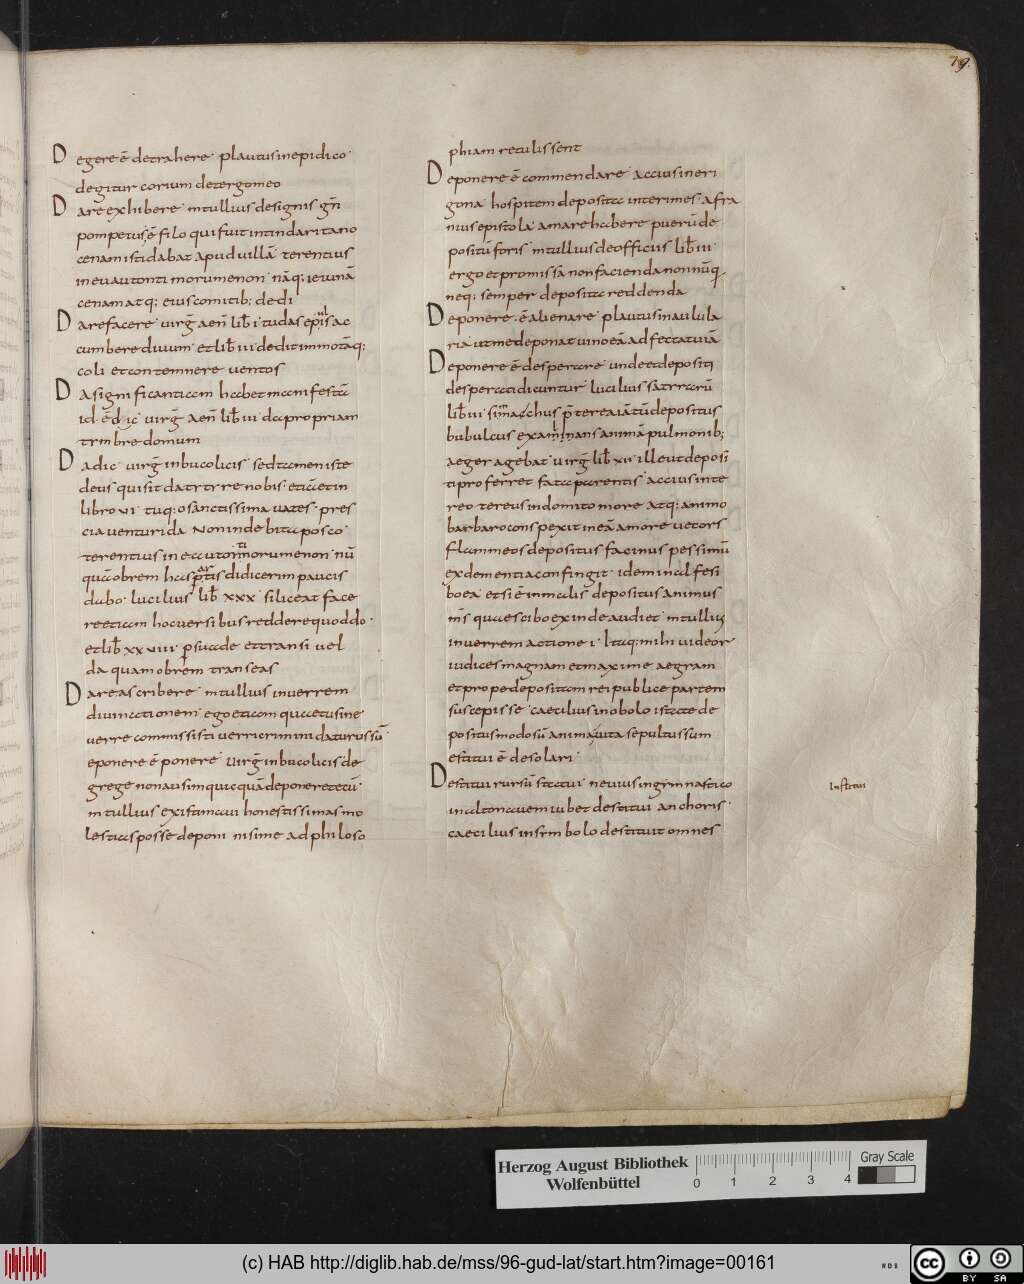 79.
Degere ē detrahere plautus inepidico
degitur corium detergomeo
Dare exhibere mtullius designis gn̄
pompeius ē filo qui fuit intindaritano
cenam isti dabat apud villā terentius
ineuautontimorumenon nāq; ieiunā
cenam atq; eius comitib; dedi
Dare facere virg̅ aen̄ lib̄ i tu das epulis ac
cumbere divum et lib̄ iii dedit immotāq;
coli et contemnere ventos
Da significanticam habet manifestā
id ē dic virg̅ aen̄ lib̄ iii da propriam
tymbre domum
Da dic virg̅ in bucolicis sed tamen iste
deus qui sit da tytyre nobis etia et in
libro vi tuq; o sanctissima vates pres
cia venturi da non indebita posco
terentius in eautontimorumenon nū
quā obrem has partis didicerim paucis
dabo lucilius lib̄ xxx si liceat face
re etiam hoc versibus reddere quod do
et lib̄ xxviii psuade et transi vel
da quam obrem transeas
Dare ascribere mtullius inverrem
divinationem ego etiam quae tu sine
verre commisisti verri crimini daturus sū
eponere ē ponere virg̅ in bucolicis de
grege non ausim quicquā deponere tecū
mtullius existimavi honestissimas mo
lestias posse deponi nisi me ad philoso
phiam retulissent
Deponere ē commendare accius in eri
gona hospitem deposita interimes afra
nius epistola amare habere puerū de
positū foris mtullius de officiis lib̄ iii
ergo et promissa non facienda nonnūq
neq; semper deposita reddenda
Deponere ē alienare plautus in aulula
ria ut me deponat vino eā ad fectat viā
Deponere ē desperare unde et depositi
desperati dicuntur lucilius satyrarū
lib̄ iii simmachus p̄terea iā tū depositus
bubulcus examinans animā pulmonib;
aeger agebat virg̅ lib̄ xii ille ut deposi
ti proferret fata parentis accius inte
reo tereus indomito more atq; animo
barbaro conspexit in eā amore vecors
flammeo depositus facinus pessimū
ex dementia confingit idem in alfesi
boea etsi ē in malis depositus animus
m̄s quae scibo exinde audiet mtullius
in verrem actione i Itaq; mihi videor
iudices magnam et maxime aegram
et prope depositam rei publice partem
suscepisse caecilius in obolostate de
positus modo sū anima vita sepultus sum
estitui ē desolari
Destitui rursū statui nevius in gymnastico
in altom navem iubet destitui anchoris
caecilius in symbolo destituit omnes
Instrui
Herzog August Bibliothek
Wolfenbüttel
0 1 2 3 4
Gray Scale
(c) HAB http://diglib.hab.de/mss/96-gud-lat/start.htm?image=00161
WDB
cc BY SA